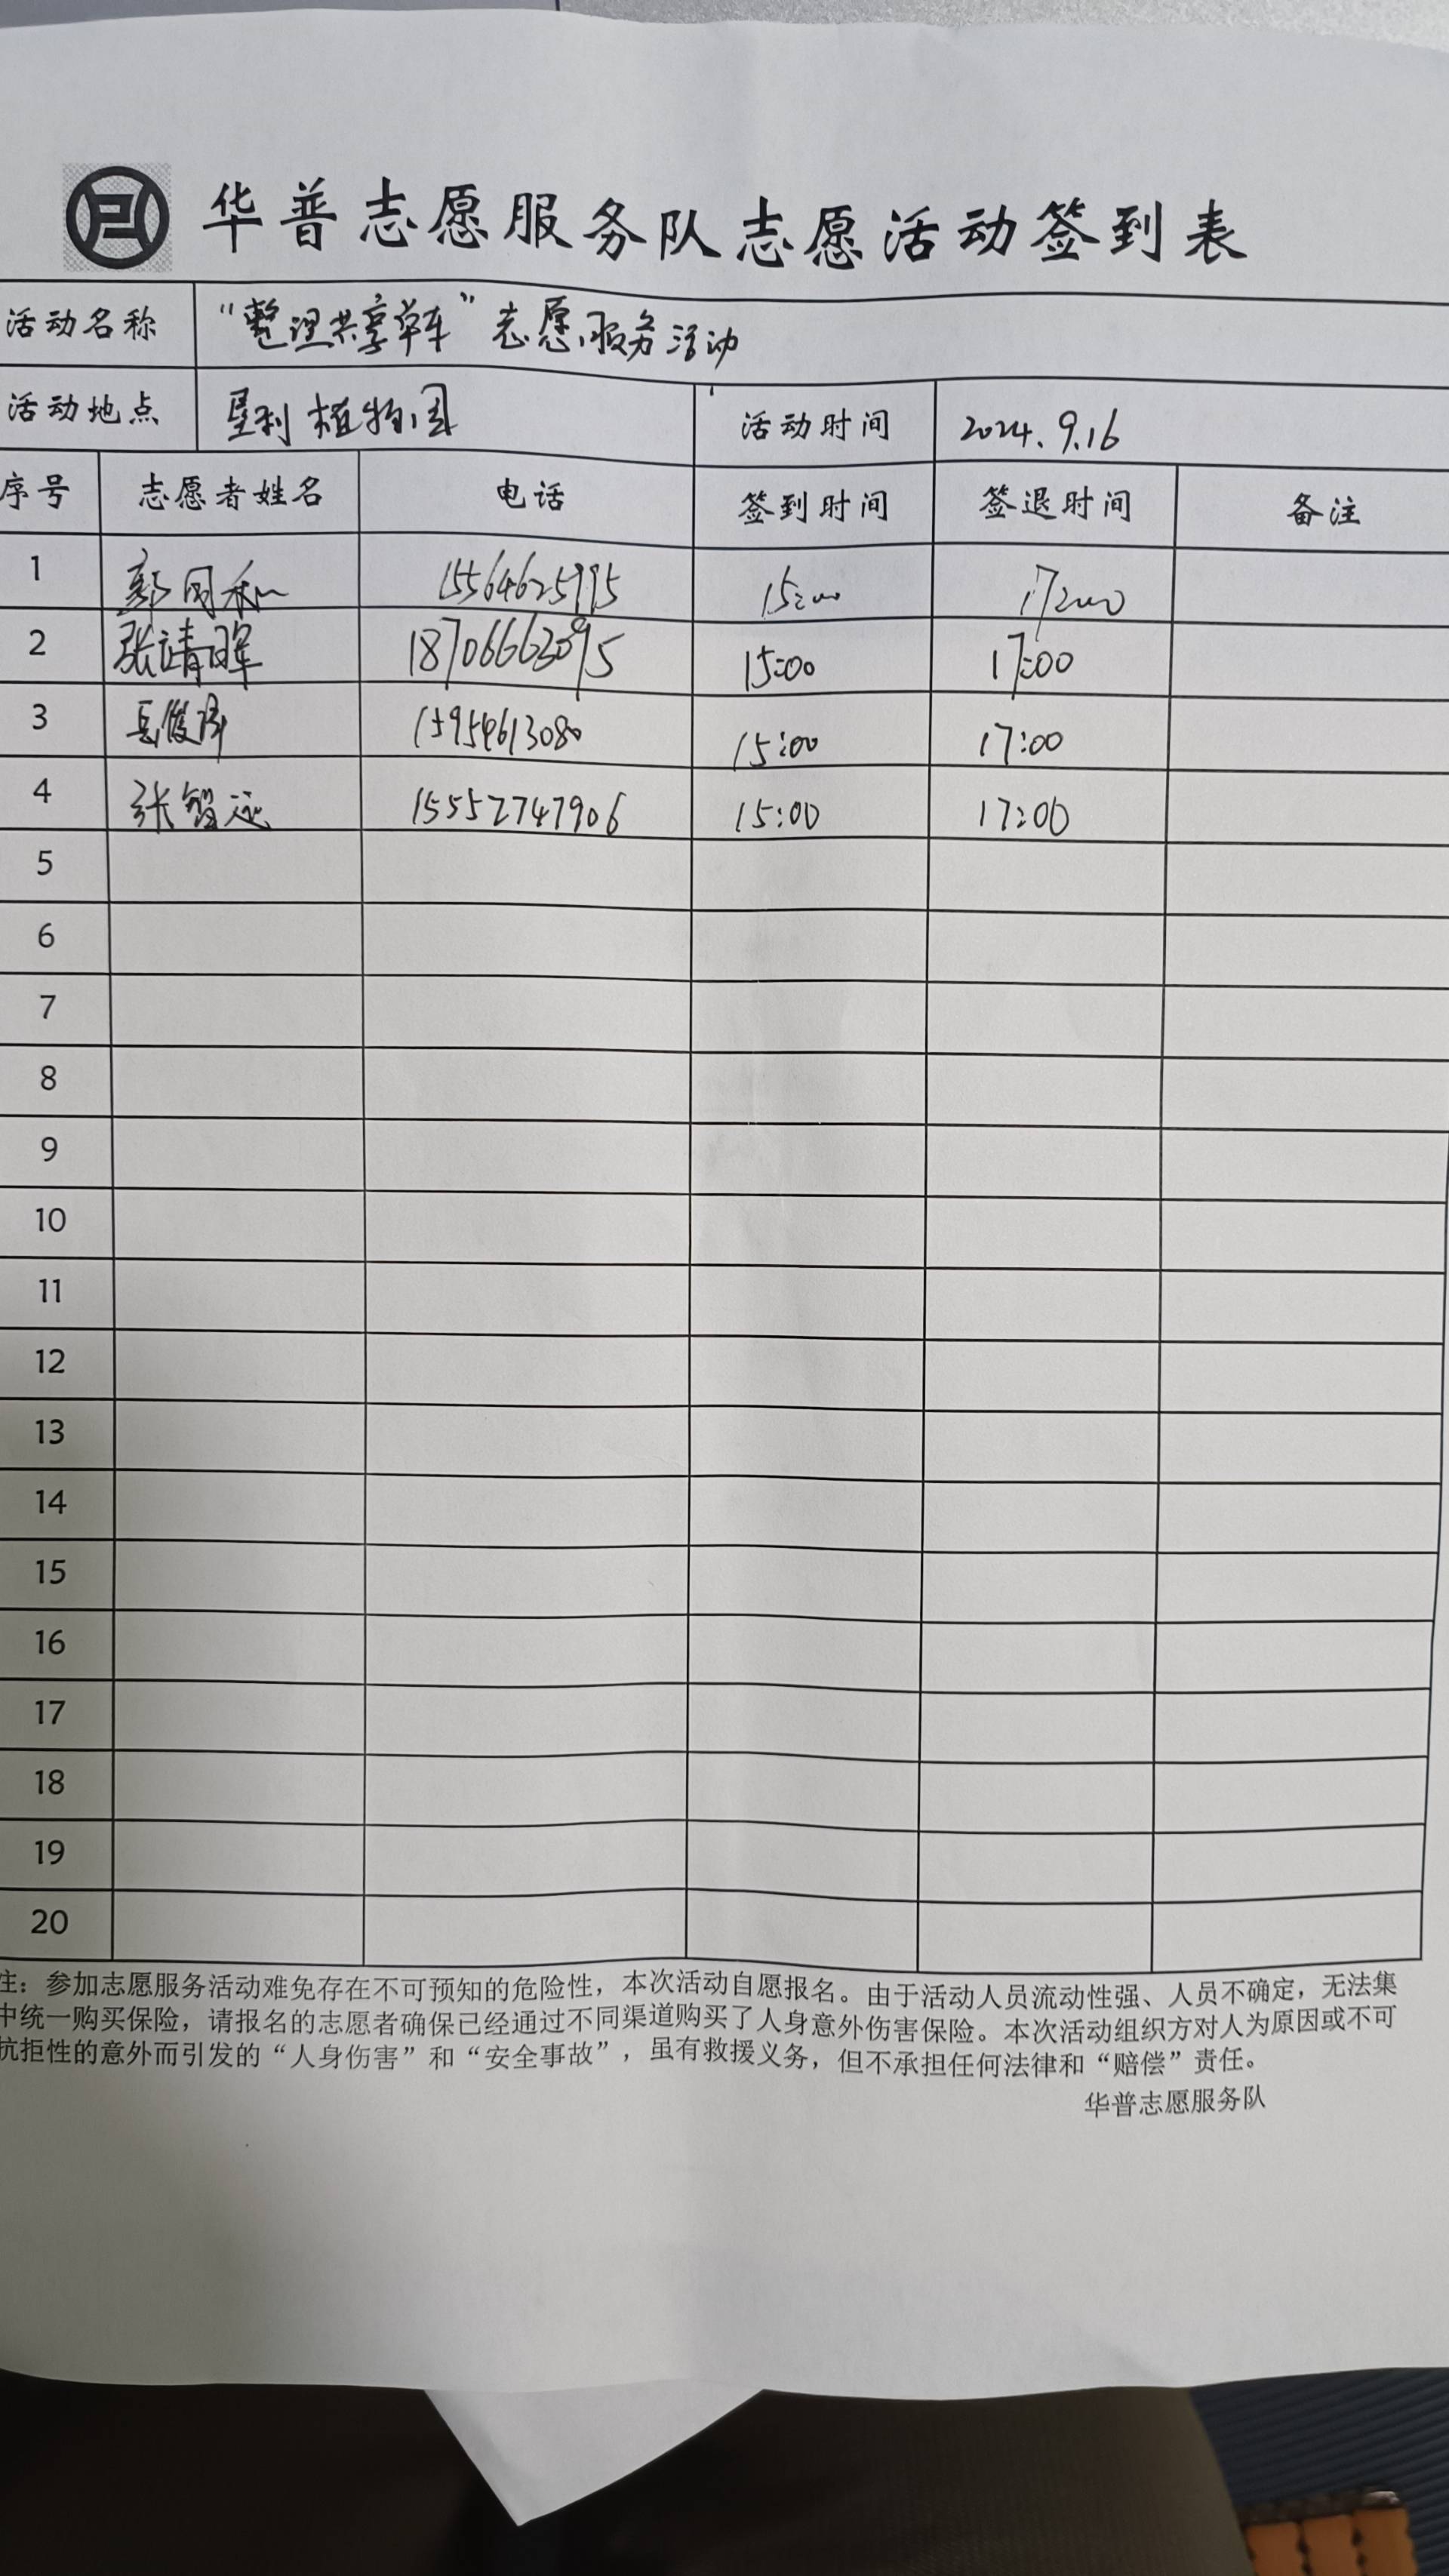 华普志愿服务队志愿活动签到表
活动名称 “整理共享单车”志愿服务活动
活动地点 垦利植物园 活动时间 2024.9.16
序号 志愿者姓名 电话 签到时间 签退时间 备注
1 郭同和 15564625995 15:00 17:00
2 张靖晖 18706663095 15:00 17:00
3 岳俊 15954613080 15:00 17:00
4 张智远 15552747906 15:00 17:00
5
6
7
8
9
10
11
12
13
14
15
16
17
18
19
20
注：参加志愿服务活动难免存在不可预知的危险性，本次活动自愿报名。由于活动人员流动性强、人员不确定，无法集
中统一购买保险，请报名的志愿者确保已经通过不同渠道购买了人身意外伤害保险。本次活动组织方对人为原因或不可
抗拒性的意外而引发的“人身伤害”和“安全事故”，虽有救援义务，但不承担任何法律和“赔偿”责任。
华普志愿服务队